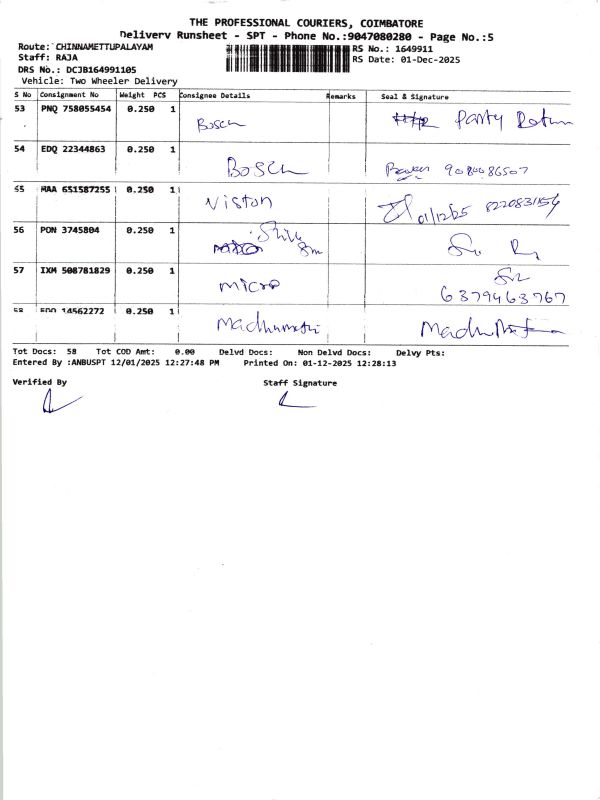 THE PROFESSIONAL COURIERS, COIMBATORE
Delivery Runsheet - SPT - Phone No.:9047080280 - Page No.:5
Route: CHINNAMETTUPALAYAM
RS No.: 1649911
Staff: RAJA
RS Date: 01-Dec-2025
DRS No.: DCJB164991105
Vehicle: Two Wheeler Delivery
S No Consignment No Weight PCS Consignee Details Remarks Seal & Signature
53 PNQ 758055454 0.250 1 Bosch Party Return
54 EDQ 22344863 0.250 1 Bosch 9080486507
55 MAA 651587255 0.250 1 Viston 01/12/25 8220831154
56 PON 3745804 0.250 1
57 IXM 508781829 0.250 1 micro 6379463767
58 EDQ 14562272 0.250 1 Madhumathi
Tot Docs: 58 Tot COD Amt: 0.00 Delvd Docs: Non Delvd Docs: Delvy Pts:
Entered By :ANBUSPT 12/01/2025 12:27:48 PM Printed On: 01-12-2025 12:28:13
Verified By Staff Signature